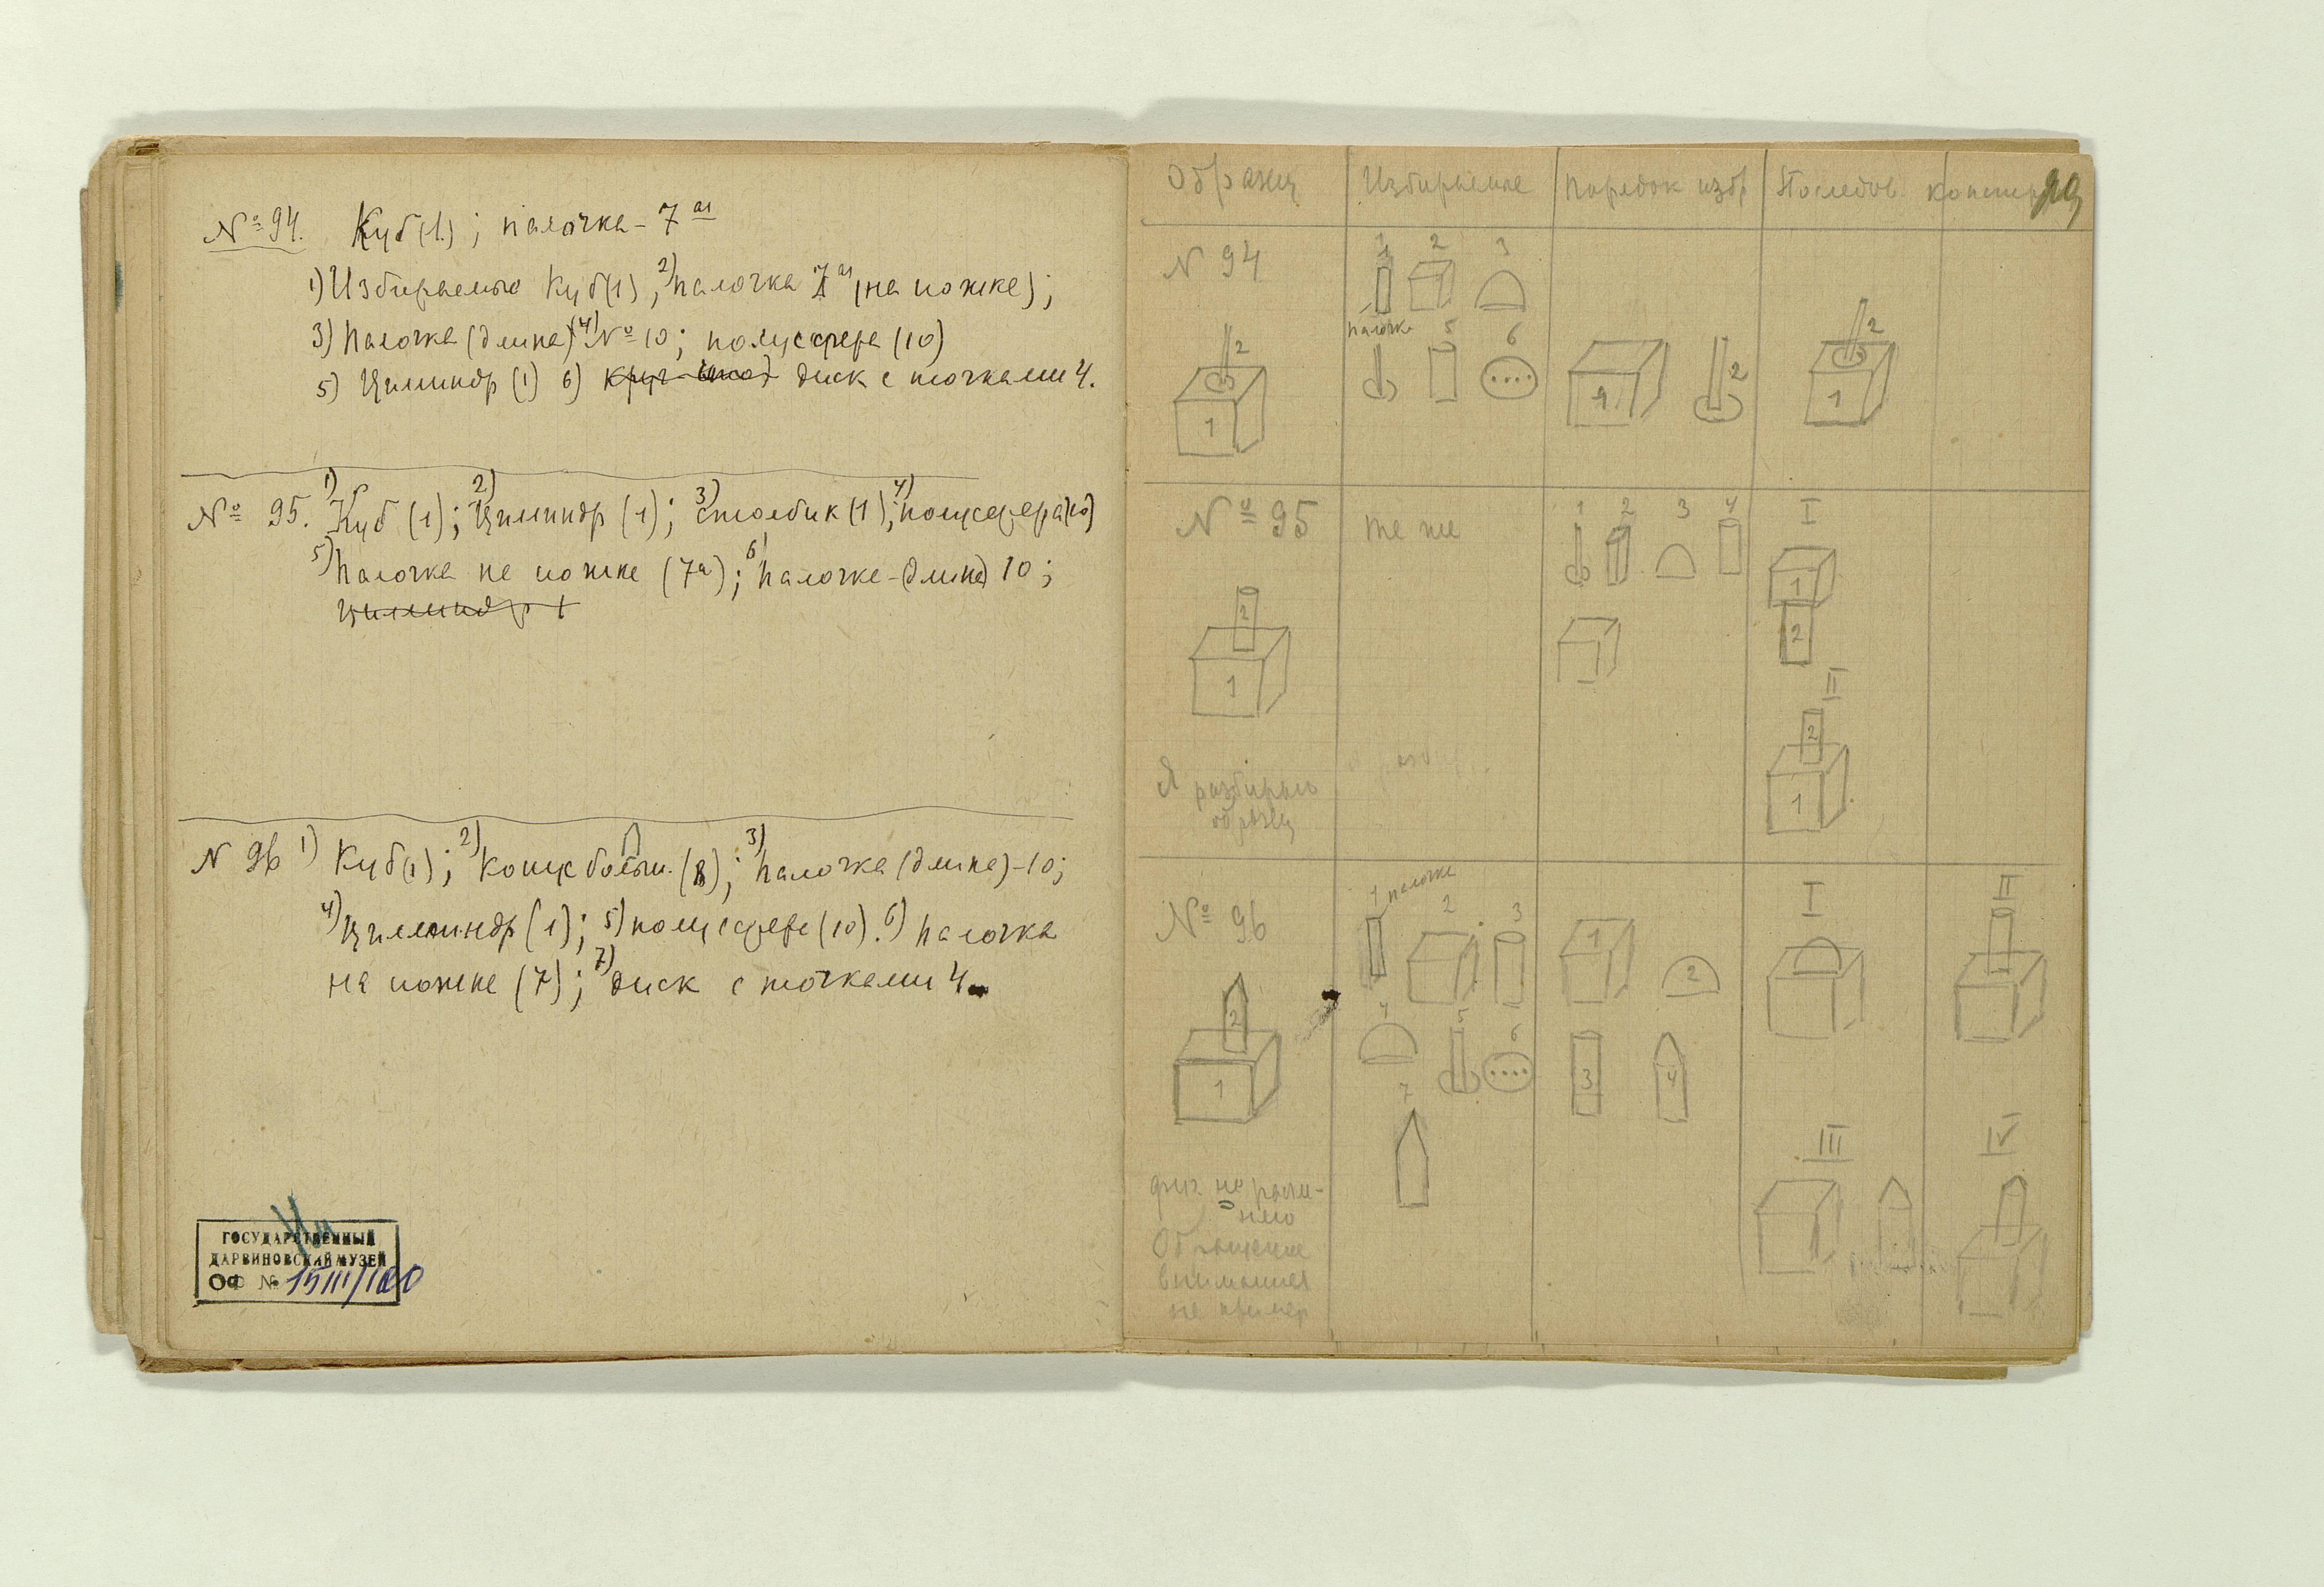 № 94. Куб (1.); палочка - 7 ая
1) Избираемые Куб (1); 2) палочка 7 ая (на ножке);
3) Палочка (длина) 4) № 10; полусфера (10)
5) Цилиндр (1) 6) диск с точками 4.
№ 95. 1) Куб (1); 2) Цилиндр (1); 3) столбик (1); 4) полусфера (10)
5) Палочка на ножке (7а); 6) палочка (длина) 10;
цилиндр 1
N 96 1) Куб (1); 2) Конус больш. (8); 3) палочка (длина) - 10;
4) Цилиндр (1); 5) полусфера (10). 6) палочка
на ножке (7); 7) диск с точками 4
ГОСУДАРСТВЕННЫЙ
ДАРВИНОВСКИЙ МУЗЕЙ
ОФ № 15111/100
Образец Избираемые Порядок избр Последов. констр
N 94
1 2 3
палочка
5 6
2
1
1 2
2
1
№ 95 те же
1 2 3 4
I
1
2
II
2
1
2
1
Я разбираю
образец
№ 96
1 палочка
2 3
4 5 6
7
2
1
1 2
3 4
I II
III IV
фиг. не разли-
нено
Обращение
внимания
на пример